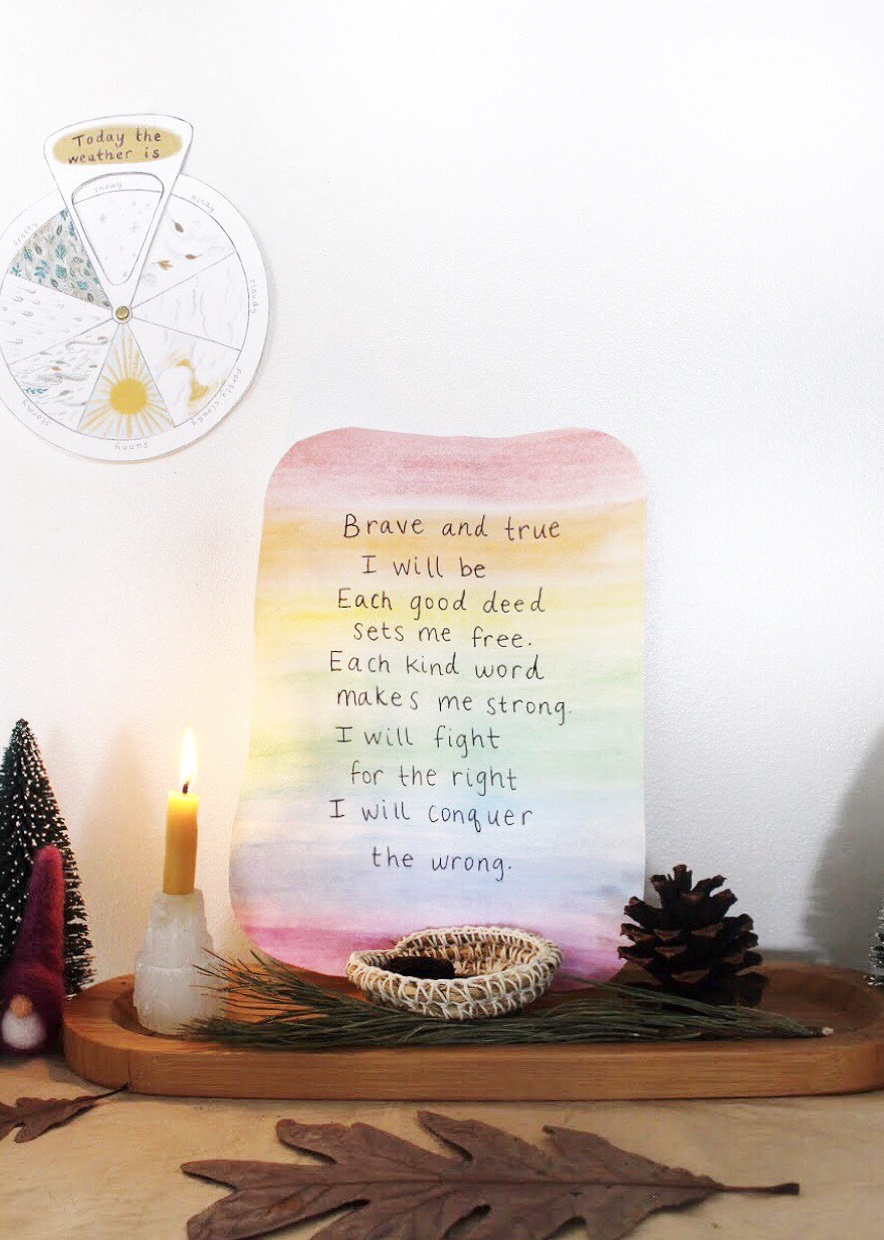 Today the
weather is
snowy
windy
cloudy
partly cloudy
sunny
stormy
frosty
Brave and true
I will be
Each good deed
sets me free.
Each kind word
makes me strong.
I will fight
for the right
I will conquer
the wrong.